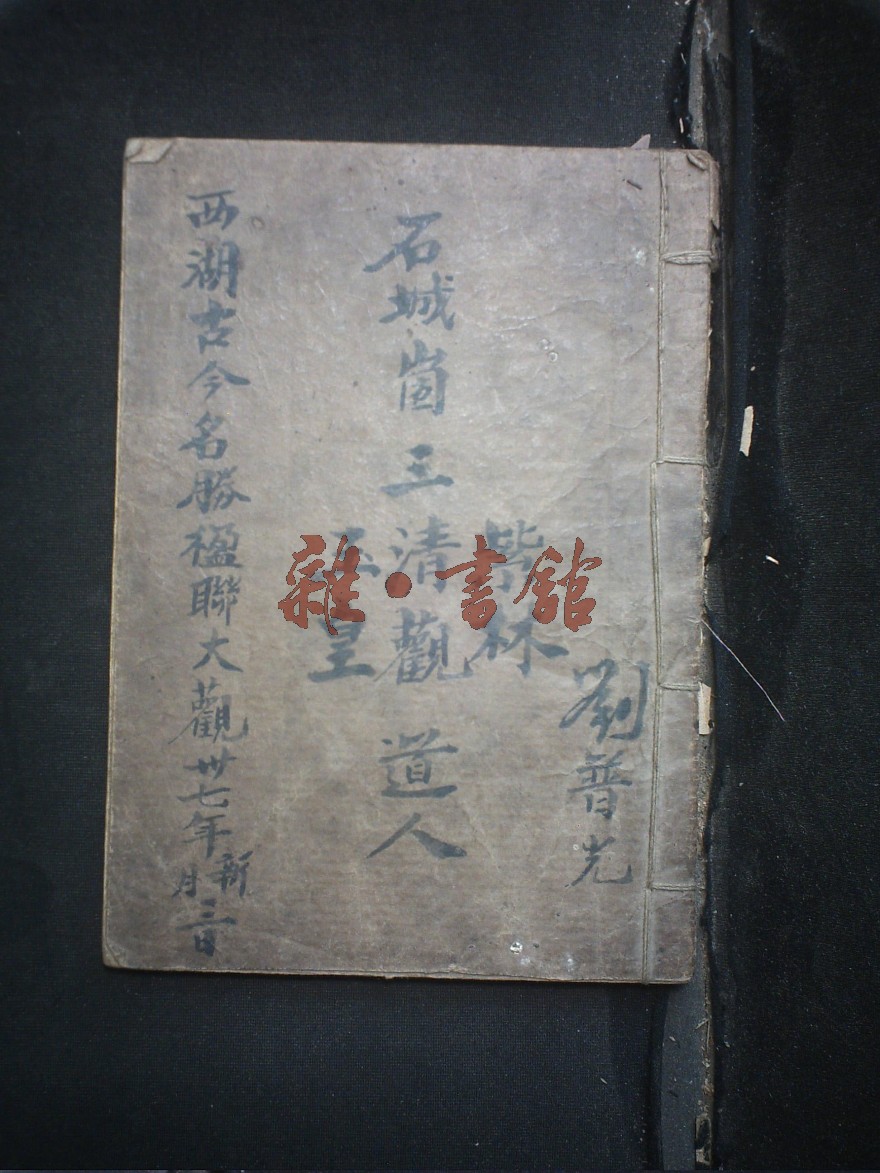 劉普光
林
石城崮三清觀道人
玉皇
西湖古今名勝楹聯大觀卅七年新月三日
雜·書館